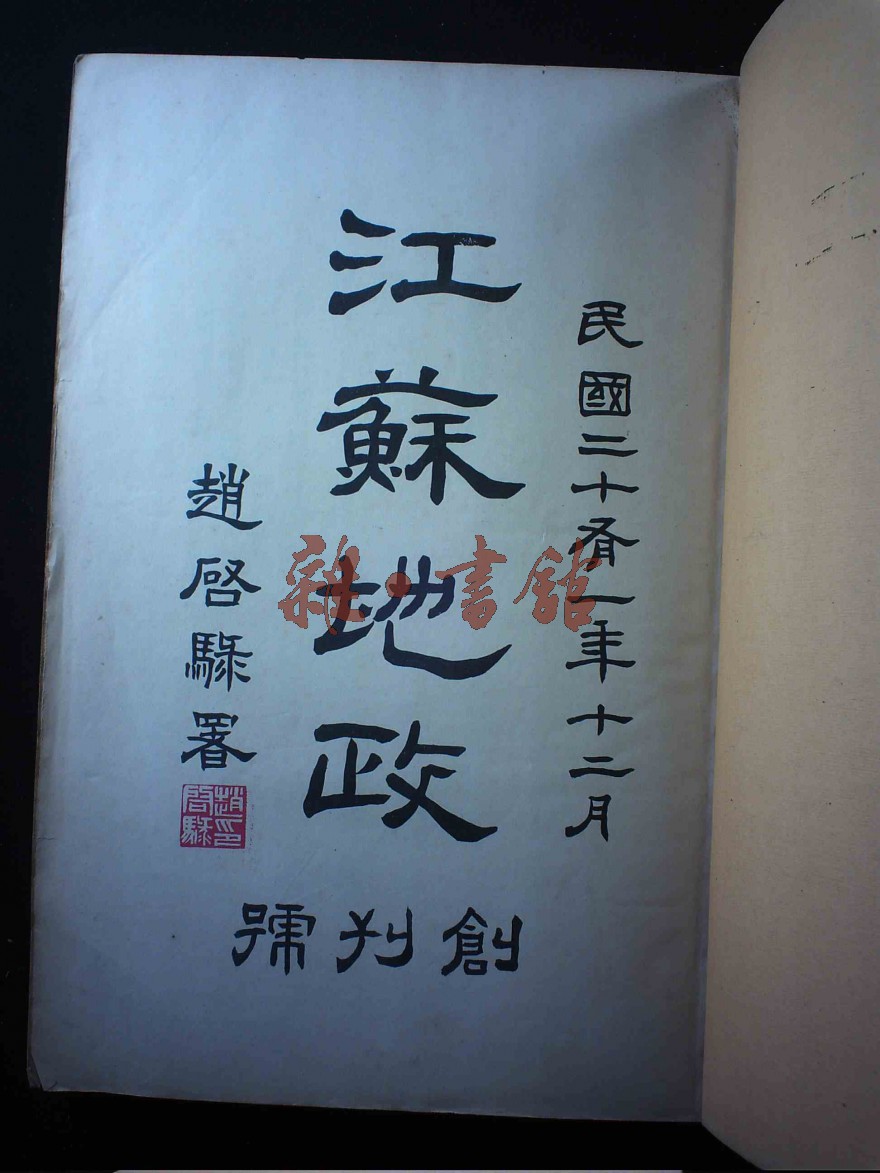 民國二十有一年十二月
江蘇地政
創刊號
趙啓騄署
趙印啓騄
雜·書館